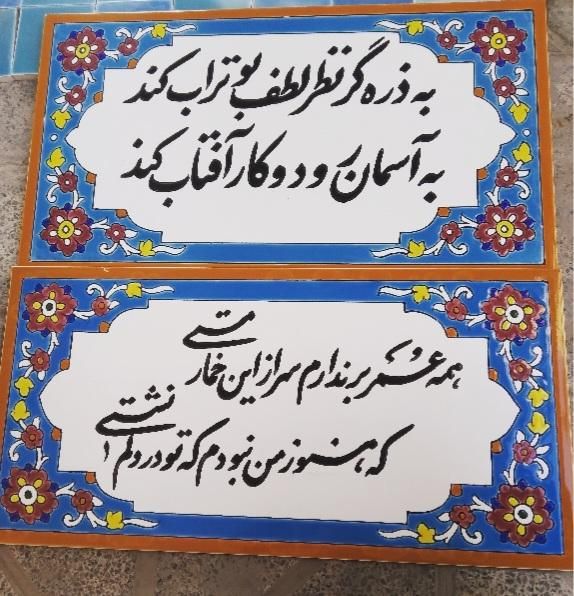 به ذره گر نظر لطف بوتراب کند
به آسمان رود و کار آفتاب کند
همه عمر برندارم سر از این خمار مستی
که هنوز من نبودم که تو در دلم نشستی